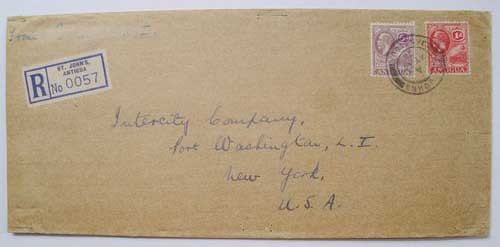 ST. JOHN'S,
ANTIGUA
R No 0057
1d
ANTIGUA
Intercity Company,
Port Washington, L.I.
New York,
U.S.A.